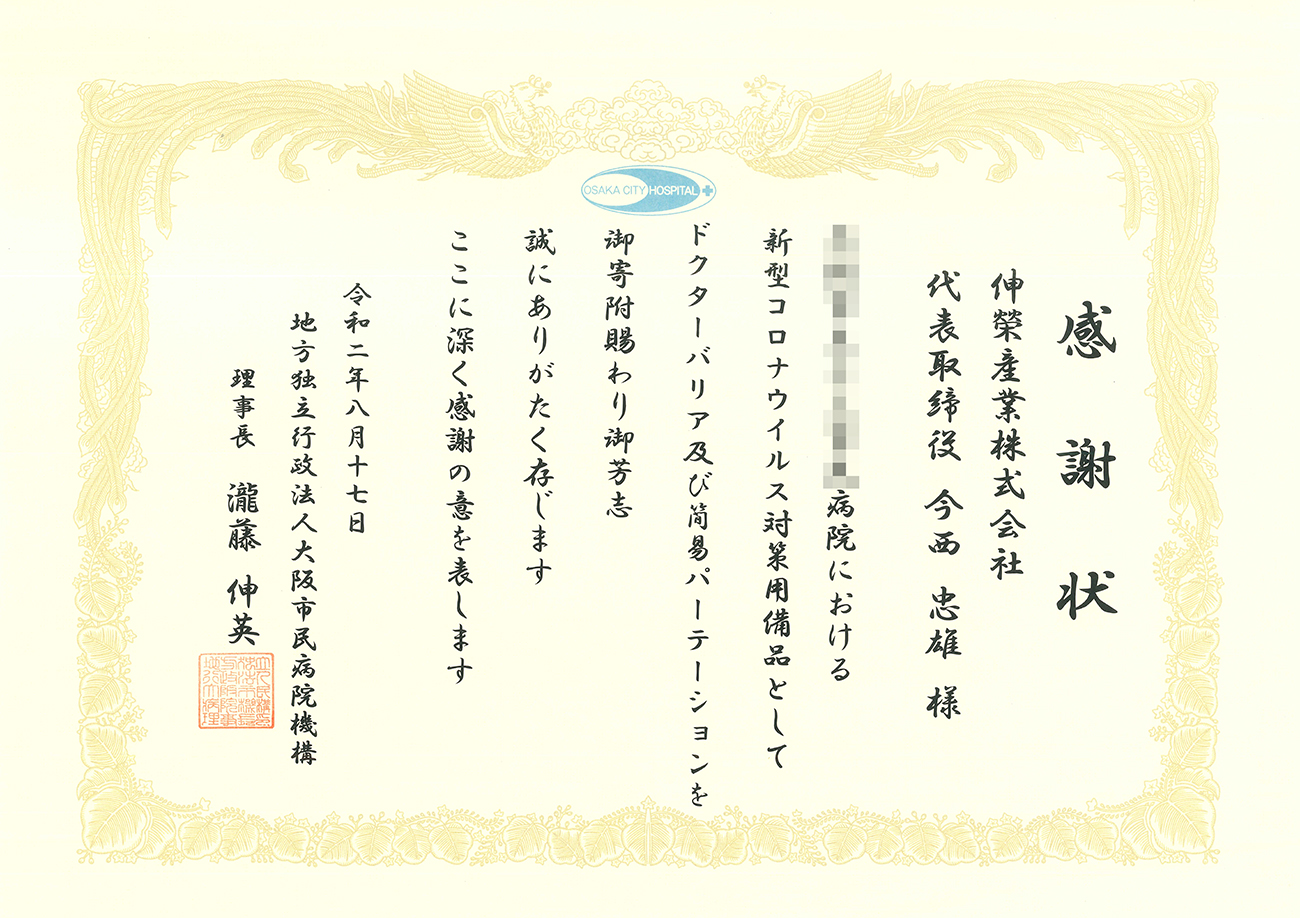 OSAKA CITY HOSPITAL
感謝状
伸榮産業株式会社
代表取締役 今西 忠雄 様
病院における
新型コロナウイルス対策用備品として
ドクターバリア及び簡易パーテーションを
御寄附賜わり御芳志
誠にありがたく存じます
ここに深く感謝の意を表します
令和二年八月十七日
地方独立行政法人大阪市民病院機構
理事長 瀧藤 伸英